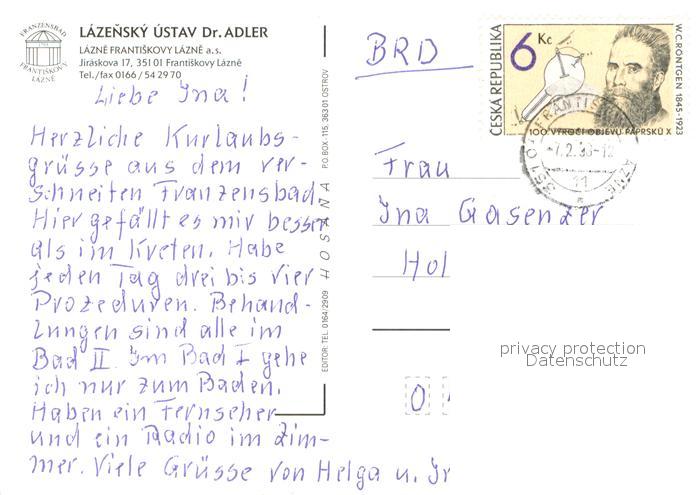 FRANZENSBAD
FRANTIŠKOVY
LÁZNĚ
LÁZEŇSKÝ ÚSTAV Dr. ADLER
LÁZNĚ FRANTIŠKOVY LÁZNĚ a.s.
Jiráskova 17, 351 01 Františkovy Lázně
Tel./fax 0166 / 54 29 70
Liebe Ina!
Herzliche Kurlaubs-
grüsse aus dem ver-
schneiten Franzensbad
Hier gefällt es mir besser
als im Kveten. Habe
jeden Tag drei bis vier
Prozeduren. Behand-
lungen sind alle im
Bad II. Im Bad I gehe
ich nur zum Baden.
Haben ein Fernseher
und ein Radio im Zim-
mer. Viele Grüsse von Helga u. Ir
EDITOR: TEL. 0164/2909 HOSANA P.O.BOX-115, 363 01 OSTROV
BRD
ČESKÁ REPUBLIKA
6 Kč
W.C.RÖNTGEN 1845-1923
100.VÝROČÍ OBJEVU PAPRSKŮ X
-7.2.96-12
Frau
Ina Gasenzer
Hol
O
privacy protection
Datenschutz